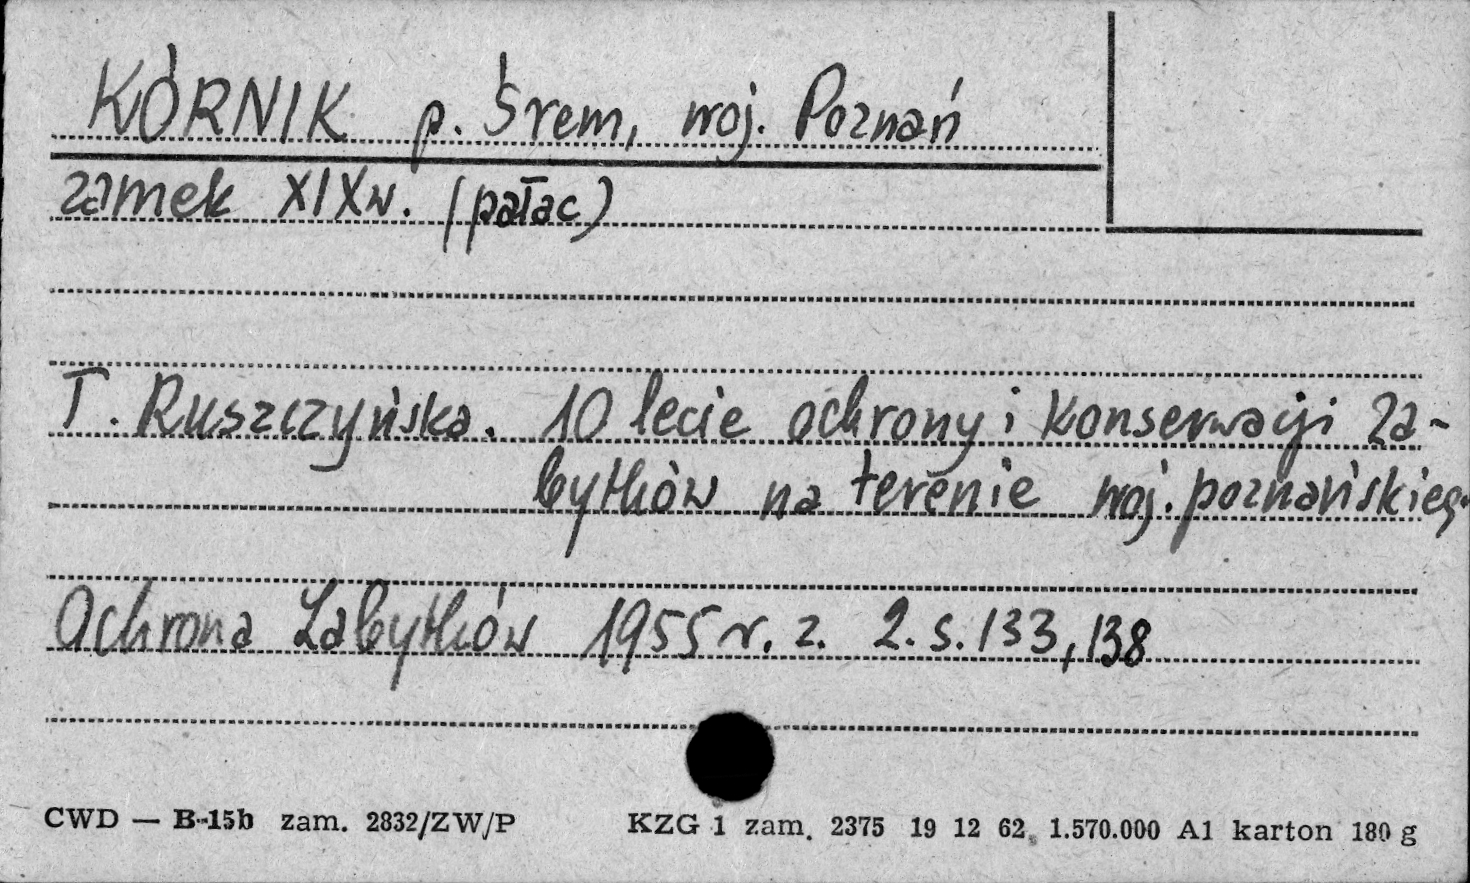 KÓRNIK p. Śrem, woj. Poznań
zamek XIXw. (pałac)
T. Ruszczyńska. 10 lecie ochrony i konserwacji za-
bytków na terenie woj. poznańskieg.
Ochrona Zabytków 1955 r. z. 2. s. 133, 138
CWD — B-15b zam. 2832/ZW/P KZG 1 zam. 2375 19 12 62. 1.570.000 A1 karton 180 g